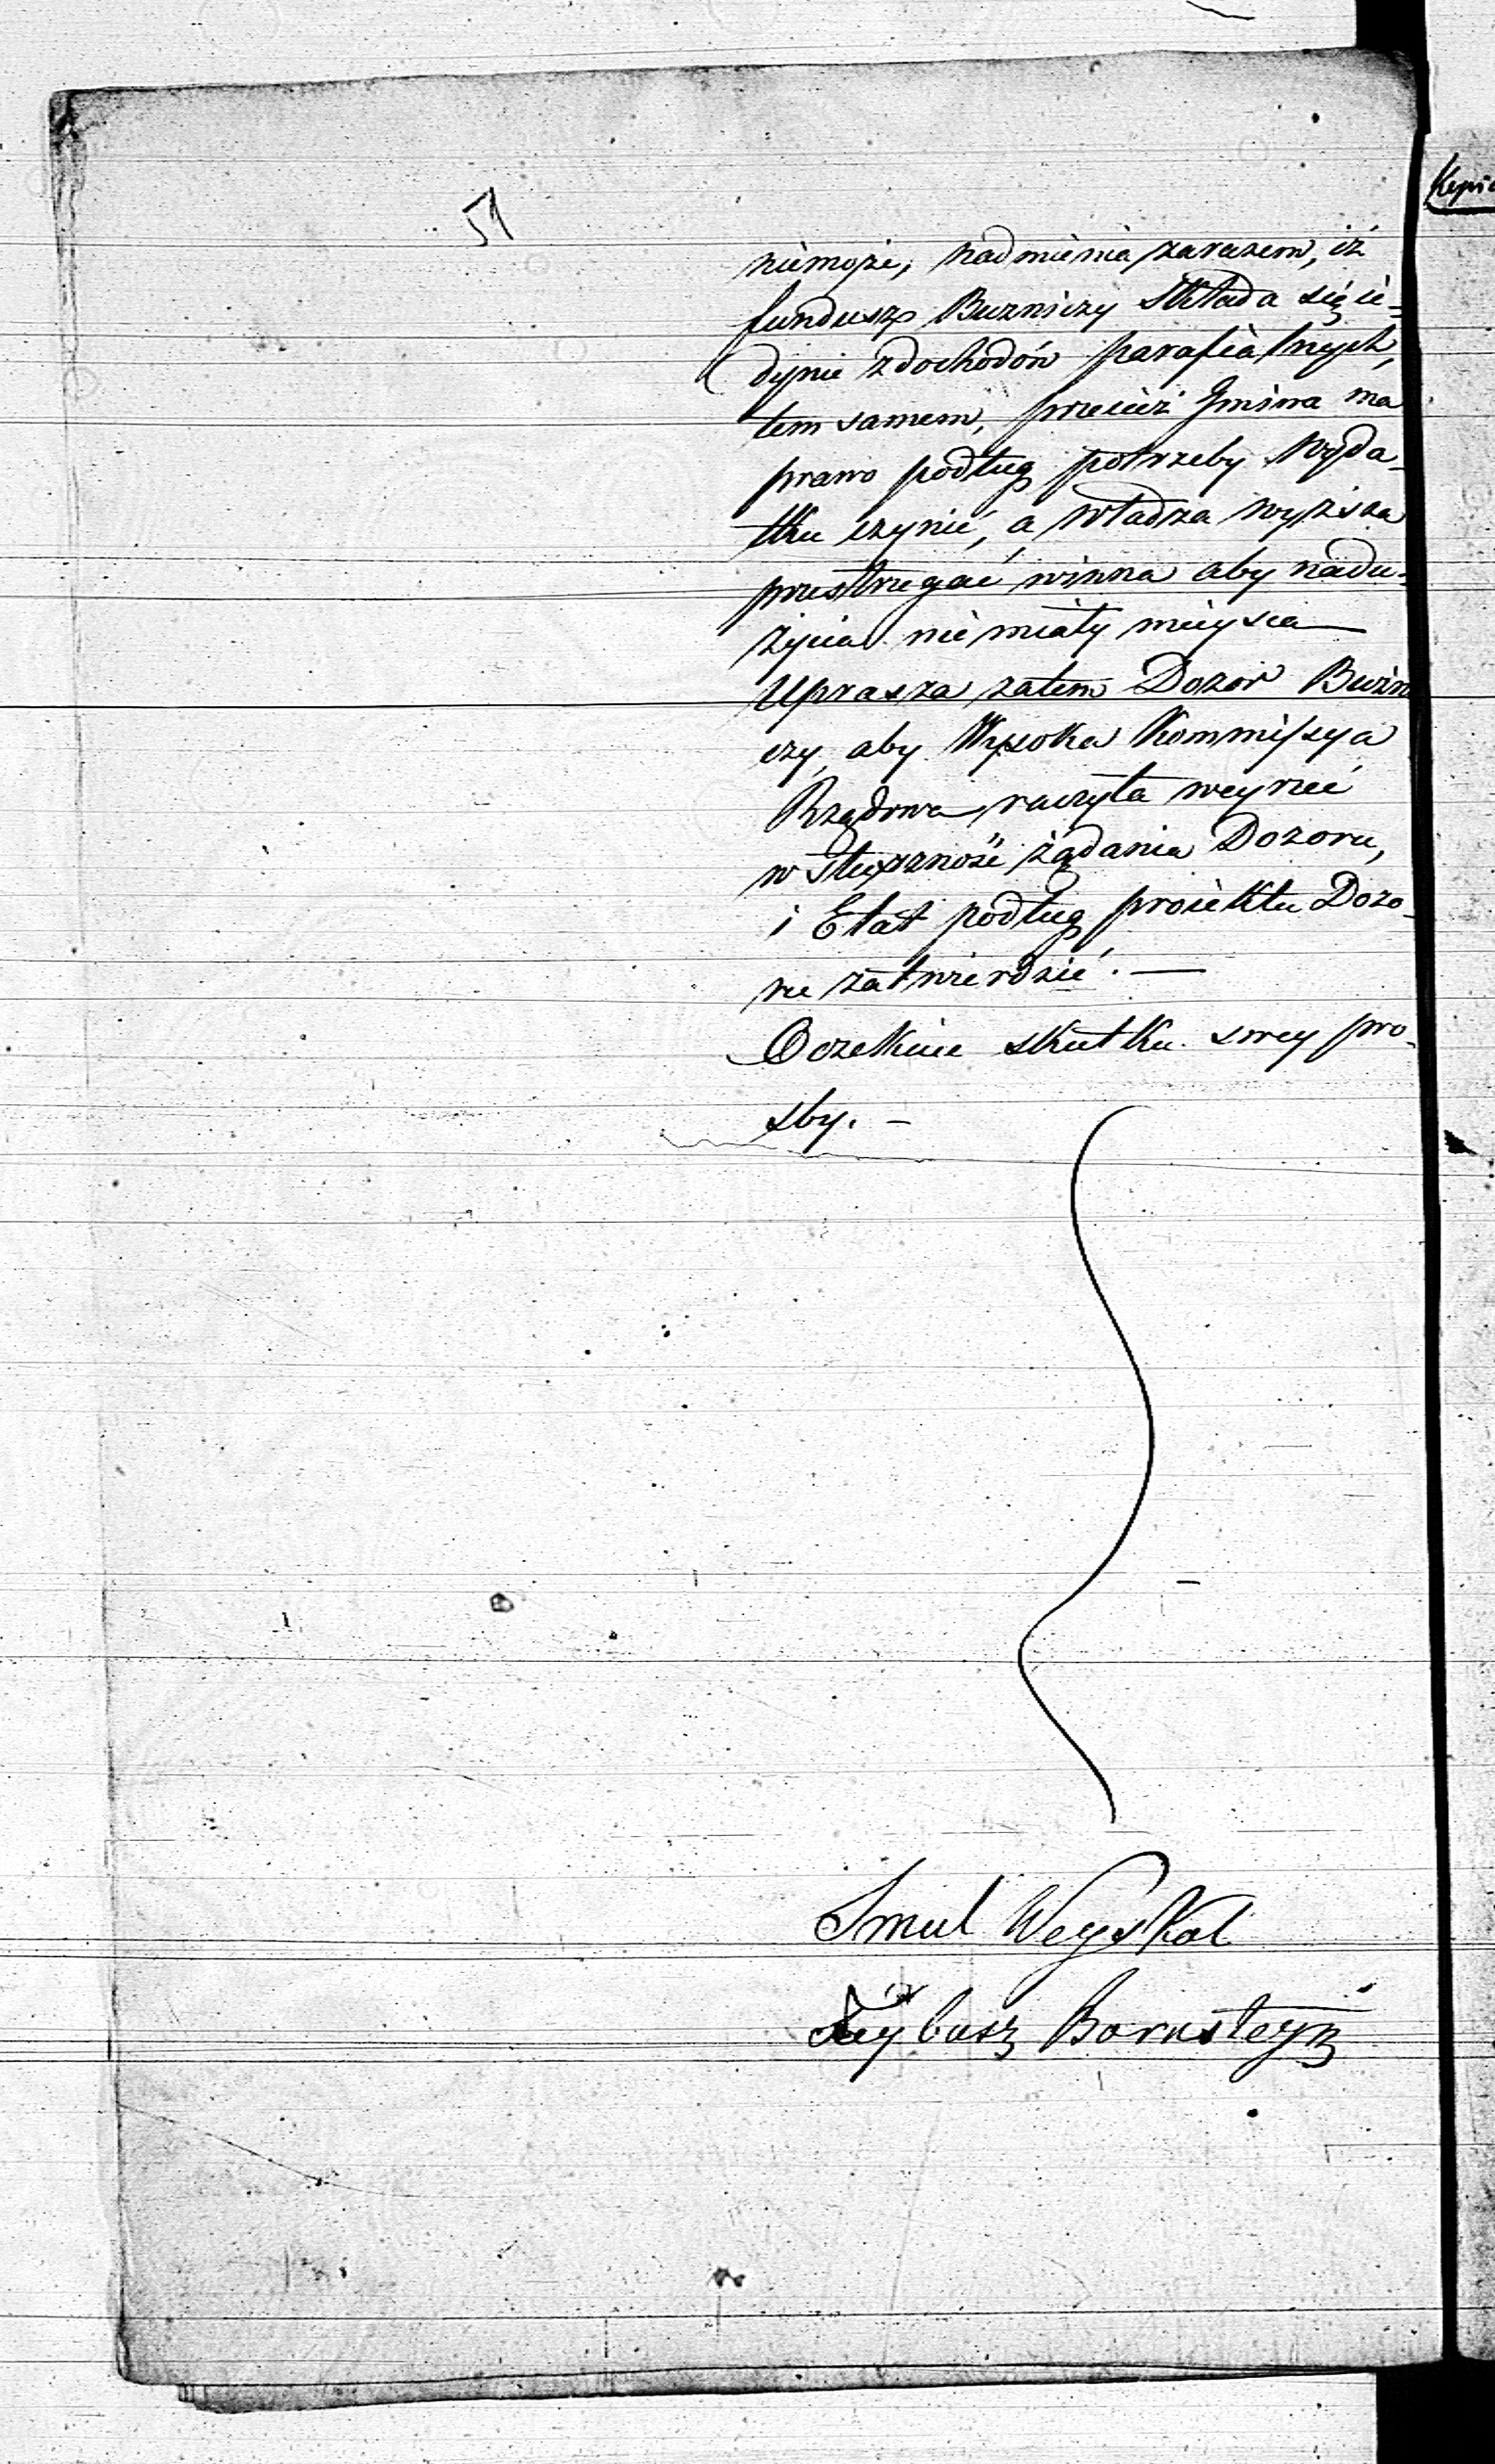 51
niemoże, nadmienia zarazem, iż
fundusz Bużniczy Składa się ie-
dynie z dochodów parafialnych,
tem samem, przecież Gmina ma
prawo podług potrzeby wyda-
tku czynić, a władza wyższa
przestrzegać winna aby nadu-
życia nie miały mieysca —
Uprasza zatem Dozór Bużn
czy, aby Wysoka Kommissya
Rządowa raczyła weyrzeć
w słuszność żądania Dozoru,
i Etat podług proiektu Dozo-
ru zatwierdzić. —
Oczekuie skutku swey pro-
śby. —
Smul Weyskol
Leybusz Bornsteyn